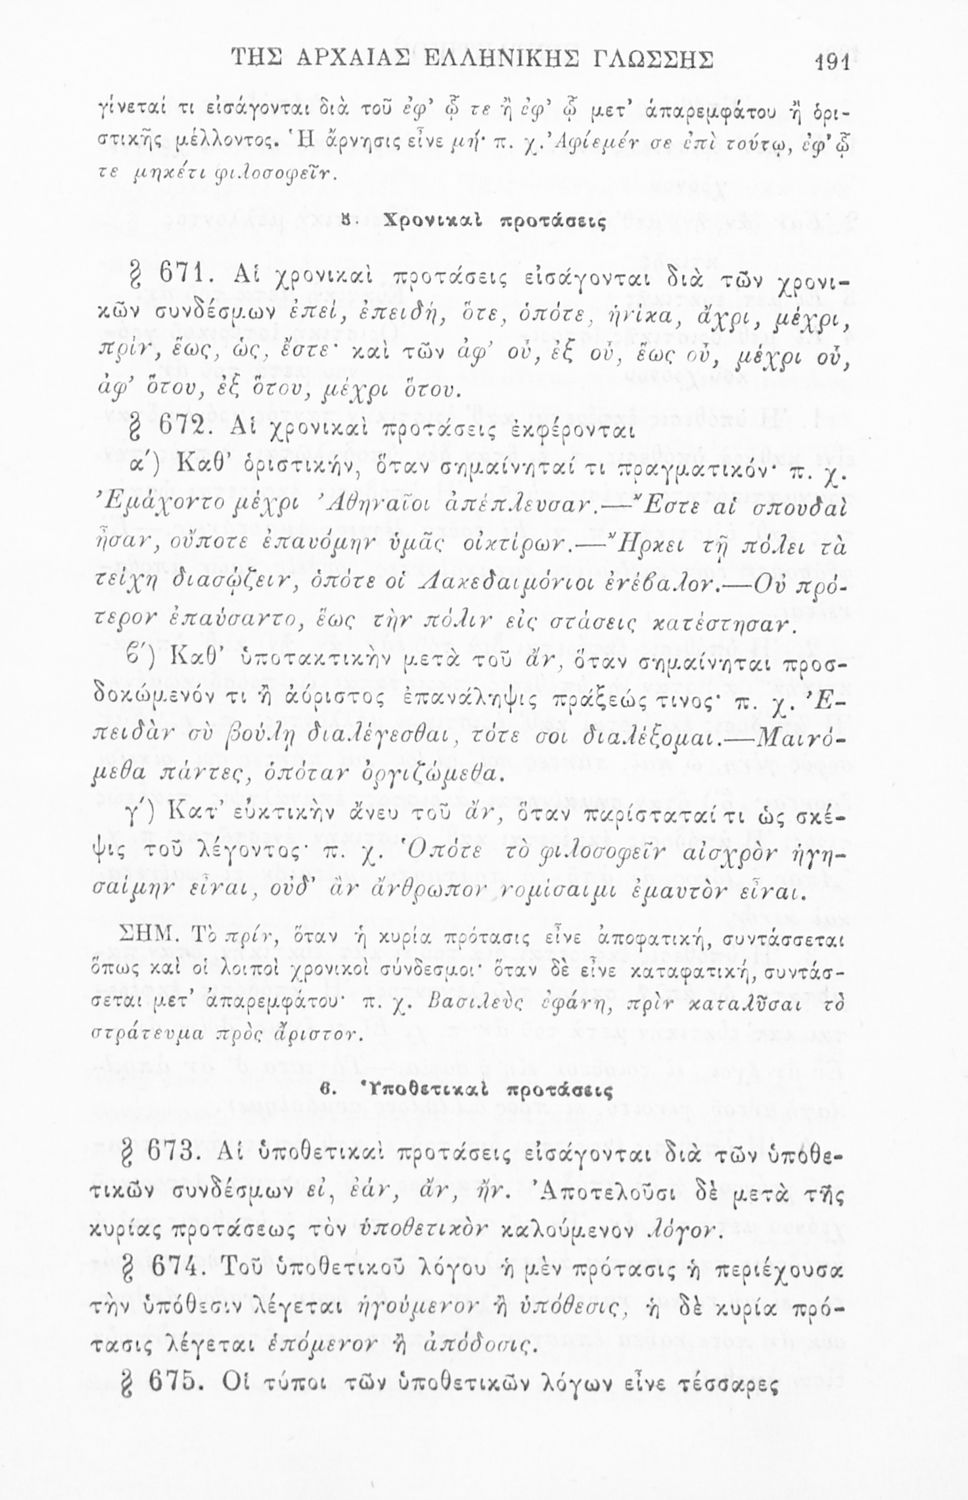 ΤΗΣ ΑΡΧΑΙΑΣ ΕΛΛΗΝΙΚΗΣ ΓΛΩΣΣΗΣ 191
γίνεταί τι εἰσάγονται διὰ τοῦ ἐφ' ᾧ τε ἢ ἐφ' ᾧ μετ' ἀπαρεμφάτου ἢ ὁρι-
στικῆς μέλλοντος. Ἡ ἄρνησις εἶνε μή· π. χ. Ἀφίεμέν σε ἐπὶ τούτῳ, ἐφ' ᾧ
τε μηκέτι φιλοσοφεῖν.
5. Χρονικαὶ προτάσεις
§ 671. Αἱ χρονικαὶ προτάσεις εἰσάγονται διὰ τῶν χρονι-
κῶν συνδέσμων ἐπεί, ἐπειδή, ὅτε, ὁπότε, ἡνίκα, ἄχρι, μέχρι,
πρίν, ἕως, ὡς, ἔστε· καὶ τῶν ἀφ' οὗ, ἐξ οὗ, ἕως οὗ, μέχρι οὗ,
ἀφ' ὅτου, ἐξ ὅτου, μέχρι ὅτου.
§ 672. Αἱ χρονικαὶ προτάσεις ἐκφέρονται
α') Καθ' ὁριστικήν, ὅταν σημαίνηταί τι πραγματικόν· π. χ.
Ἐμάχοντο μέχρι Ἀθηναῖοι ἀπέπλευσαν.—Ἔστε αἱ σπονδαὶ
ἦσαν, οὔποτε ἐπαυόμην ὑμᾶς οἰκτίρων.—Ἤρκει τῇ πόλει τὰ
τείχη διασῴζειν, ὁπότε οἱ Λακεδαιμόνιοι ἐνέβαλον.—Οὐ πρό-
τερον ἐπαύσαντο, ἕως τὴν πόλιν εἰς στάσεις κατέστησαν.
β') Καθ' ὑποτακτικὴν μετὰ τοῦ ἄν, ὅταν σημαίνηται προσ-
δοκώμενόν τι ἢ ἀόριστος ἐπανάληψις πράξεώς τινος· π. χ. Ἐ-
πειδὰν σὺ βούλῃ διαλέγεσθαι, τότε σοι διαλέξομαι.—Μαινό-
μεθα πάντες, ὁπόταν ὀργιζώμεθα.
γ') Κατ' εὐκτικὴν ἄνευ τοῦ ἄν, ὅταν παρίσταταί τι ὡς σκέ-
ψις τοῦ λέγοντος· π. χ. Ὁπότε τὸ φιλοσοφεῖν αἰσχρὸν ἡγη-
σαίμην εἶναι, οὐδ' ἂν ἄνθρωπον νομίσαιμι ἐμαυτὸν εἶναι.
ΣΗΜ. Τὸ πρίν, ὅταν ἡ κυρία πρότασις εἶνε ἀποφατική, συντάσσεται
ὅπως καὶ οἱ λοιποὶ χρονικοὶ σύνδεσμοι· ὅταν δὲ εἶνε καταφατική, συντάσ-
σεται μετ' ἀπαρεμφάτου· π. χ. Βασιλεὺς ἐφάνη, πρὶν καταλῦσαι τὸ
στράτευμα πρὸς ἄριστον.
6. Ὑποθετικαὶ προτάσεις
§ 673. Αἱ ὑποθετικαὶ προτάσεις εἰσάγονται διὰ τῶν ὑποθε-
τικῶν συνδέσμων εἰ, ἐάν, ἄν, ἤν. Ἀποτελοῦσι δὲ μετὰ τῆς
κυρίας προτάσεως τὸν ὑποθετικὸν καλούμενον λόγον.
§ 674. Τοῦ ὑποθετικοῦ λόγου ἡ μὲν πρότασις ἡ περιέχουσα
τὴν ὑπόθεσιν λέγεται ἡγούμενον ἢ ὑπόθεσις, ἡ δὲ κυρία πρό-
τασις λέγεται ἑπόμενον ἢ ἀπόδοσις.
§ 675. Οἱ τύποι τῶν ὑποθετικῶν λόγων εἶνε τέσσαρες